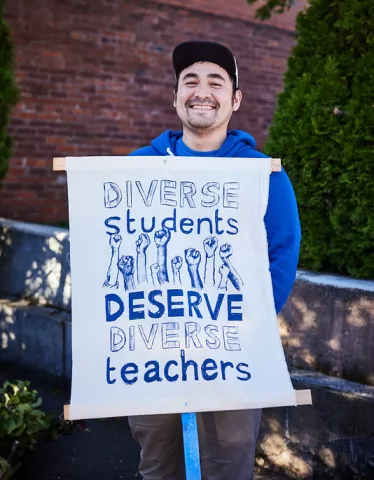 DIVERSE
students
DESERVE
DIVERSE
teachers